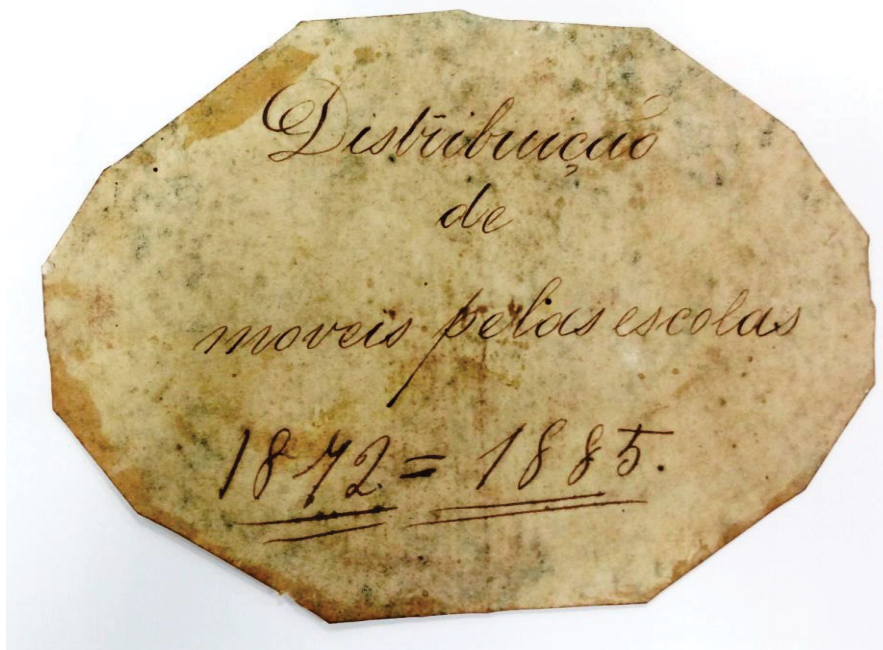 Distribuição
de
moveis pelas escolas
1872 = 1885.